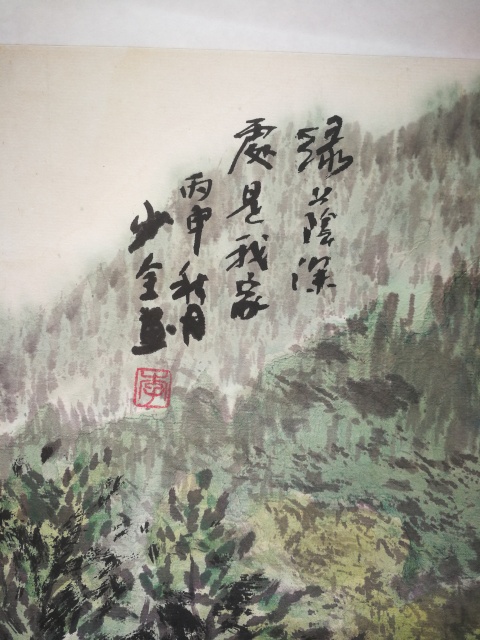 綠蔭深
處是我家
丙申秋月
少全畫
李